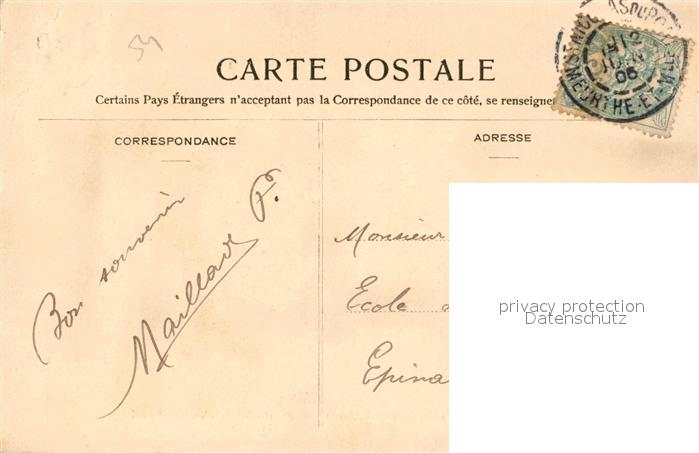 54
CARTE POSTALE
Certains Pays Étrangers n'acceptant pas la Correspondance de ce côté, se renseigne
CORRESPONDANCE
ADRESSE
Bon souvenir
Maillard P.
Monsieur
Ecole
Epina
privacy protection
Datenschutz
MEURTHE-ET-M